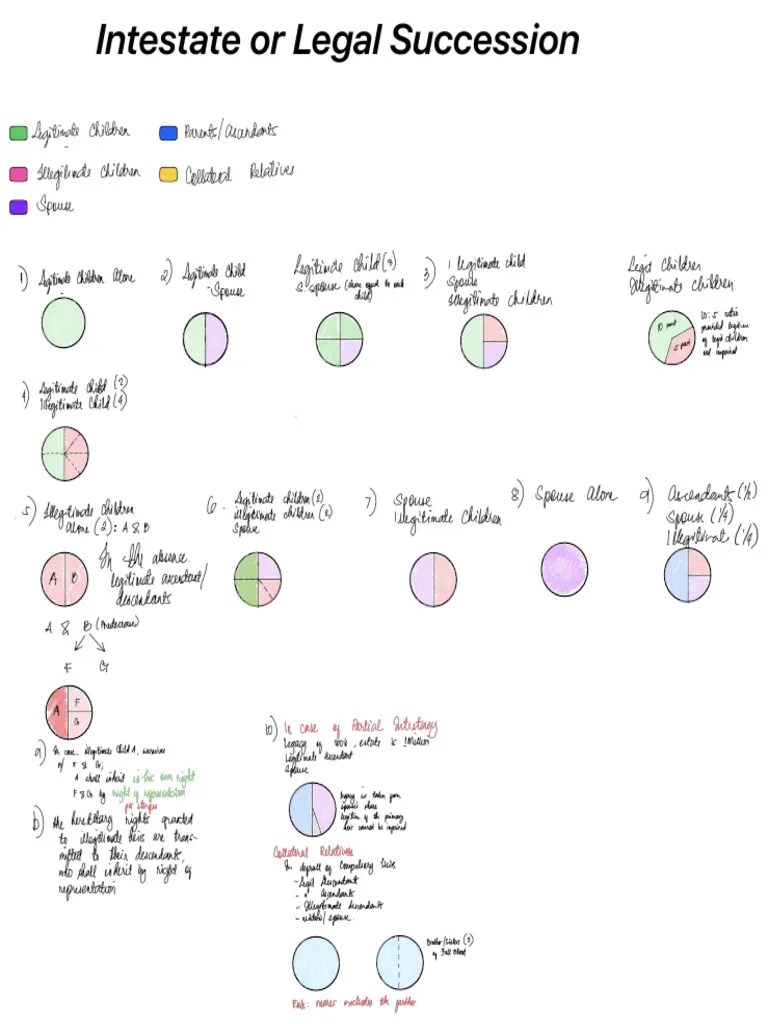 Intestate or Legal Succession
Legitimate Children
Parents/Ascendants
Illegitimate Children
Collateral Relatives
Spouse
1) Legitimate Children Alone
2) Legitimate Child
Spouse
Legitimate Child (3)
Spouse (share equal to each
child)
3) 1 legitimate child
Spouse
Illegitimate Children
Legit Children
Illegitimate children
10:5 ratio
provided legitime
of legit children
not impaired
10 part
5 part
4) Legitimate Child (2)
Illegitimate Child (4)
5) Illegitimate children
Alone (2): A & B
A B
In the absence
legitimate ascendant/
descendants
A & B (predeceased)
F G
A F
G
a) In case, illegitimate Child A, survives
w/ F & G;
A shall inherit in his own right
F & G by right of representation
per stirpes
b) the hereditary rights granted
to illegitimate heirs are trans-
mitted to their descendants,
who shall inherit by right of
representation
6. Legitimate children (2)
illegitimate children (2)
Spouse
7) Spouse
Illegitimate Children
8) Spouse Alone
9) Ascendants (1/2)
Spouse (1/4)
Illegitimate (1/4)
10) In case of Partial Intestacy
Legacy of 100k, estate is 1Million
Legitimate ascendant
Spouse
legacy is taken from
spouse's share
legitime of the primary
heir cannot be impaired
Collateral Relatives
In default of Compulsory heirs
- Legit Descendant
- " Ascendants
- Illegitimate descendants
- widow/spouse.
Brother/Sister (2)
of Full Blood
Rule: nearer excludes the farther